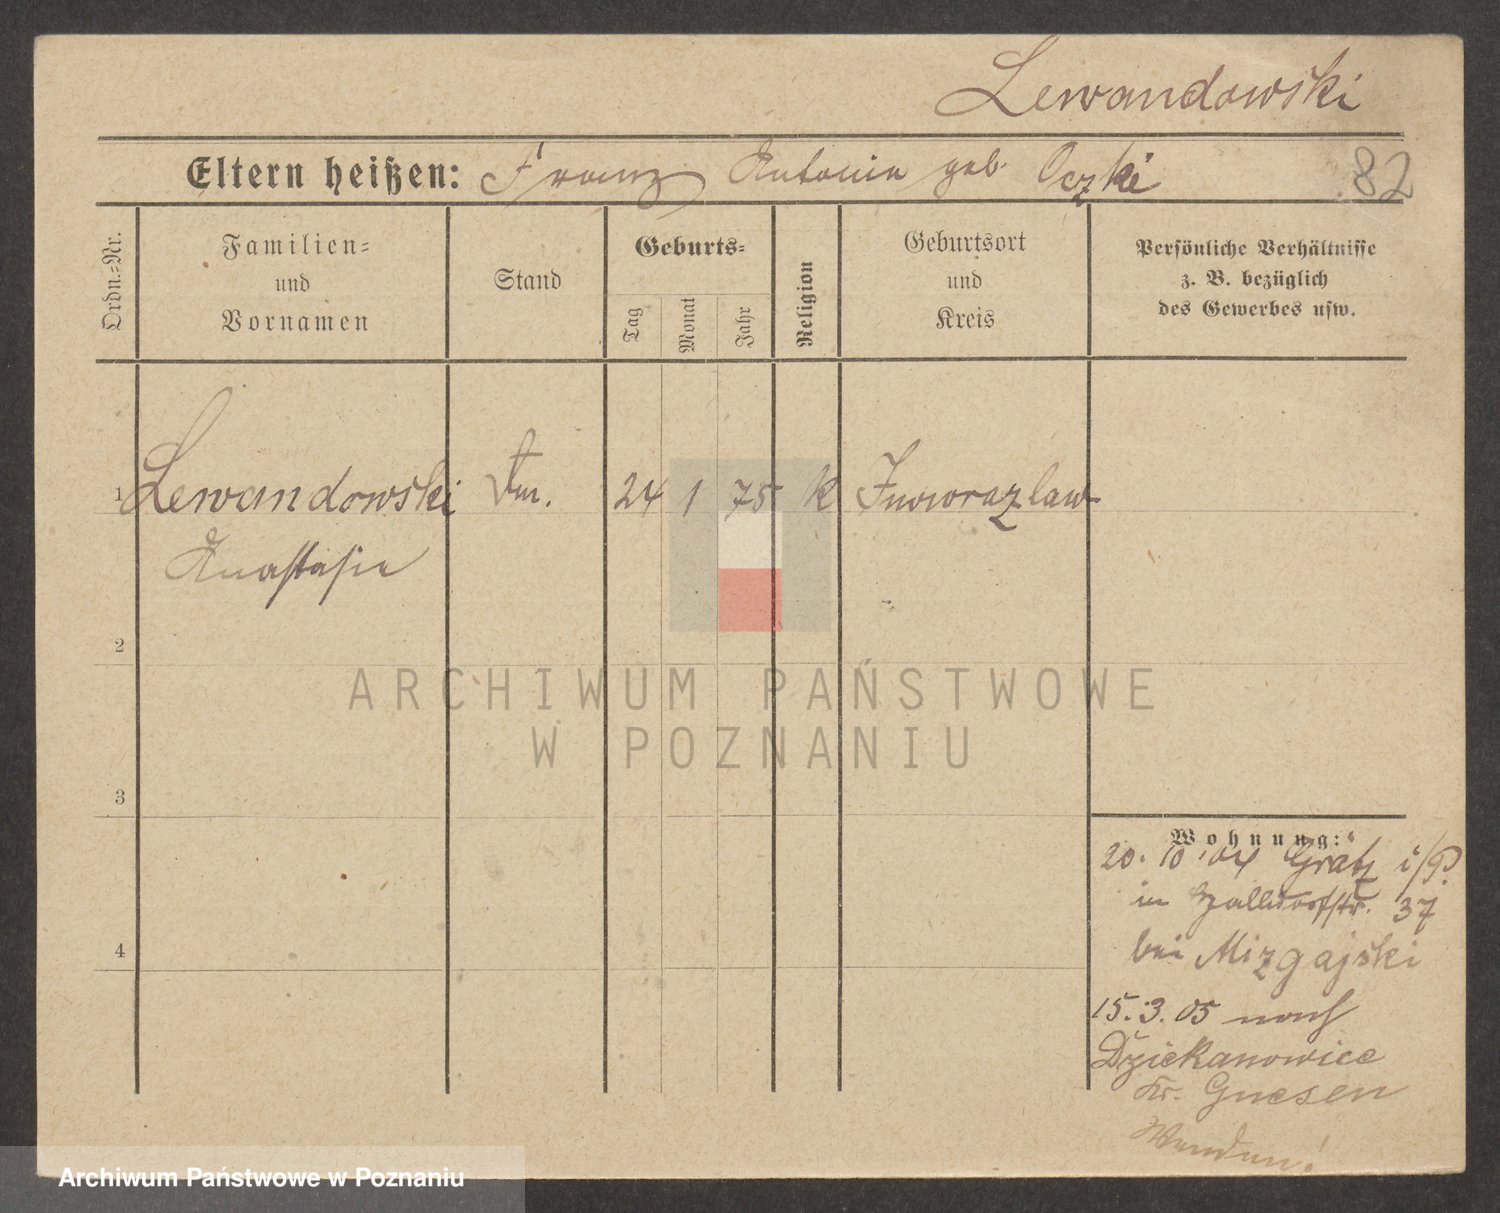 Lewandowski
Eltern heißen: Franz Antonie geb. Oczki
82
Ordn.-Nr.
Familien-
und
Vornamen
Stand
Geburts-
Tag
Monat
Jahr
Religion
Geburtsort
und
Kreis
Persönliche Verhältnisse
z. B. bezüglich
des Gewerbes usw.
1 Lewandowski 24 1 75 k Inowrazlaw
Anastasie
2
ARCHIWUM PAŃSTWOWE
W POZNANIU
3
Wohnung:
20. 10. 04 Grätz i/P.
in 37
bei Mizgajski
4
15. 3. 05 nach
Dziekanowice
Kr. Gnesen
Wenden!
Archiwum Państwowe w Poznaniu